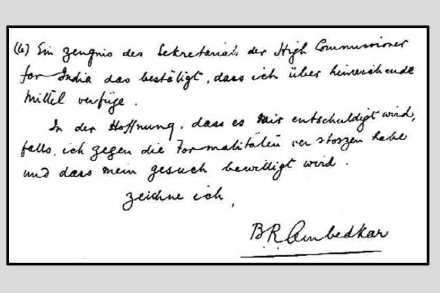 (6) Ein zeugnis des Sekretariats der High Commissioner
for India das bestätigt, dass ich über hinreichende
Mittel verfüge.
In der Hoffnung, dass es mir entschuldigt wird,
falls, ich gegen die Formalitäten verstoszen habe
und dass mein gesuch bewilligt wird.
zeichne ich,
B.R. Ambedkar